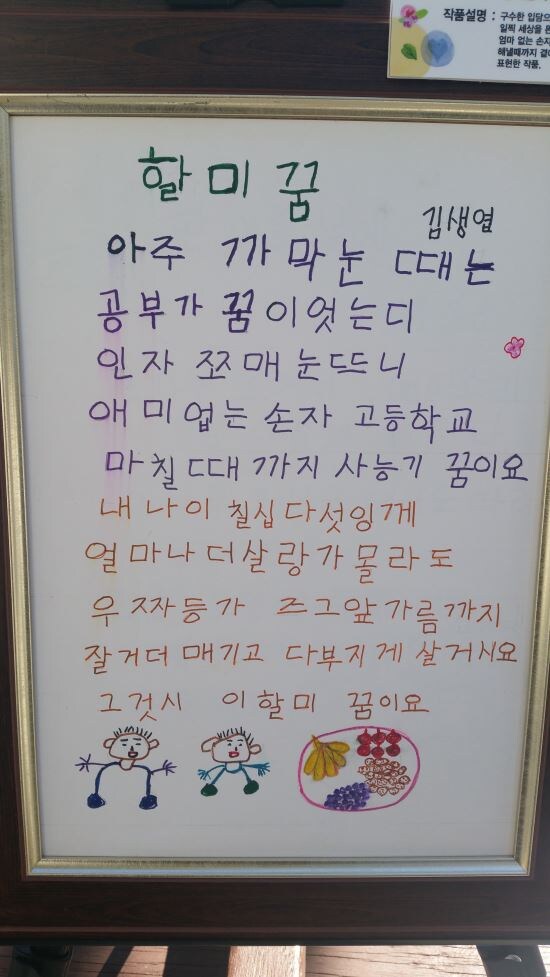 작품설명 : 구수한 입담으
일찍 세상을
엄마 없는 손자
해낼때까지
표현한 작품.
할미꿈
김생엽
아주 까막눈 때는
공부가 꿈이엇는디
인자 쪼매눈뜨니
애미업는 손자 고등학교
마칠때까지 사능기 꿈이요
내 나이 칠십다섯잉게
얼마나 더살랑가 몰라도
우짜등가 즈그앞가름까지
잘거더 매기고 다부지게 살거시요
그것시 이할미 꿈이요